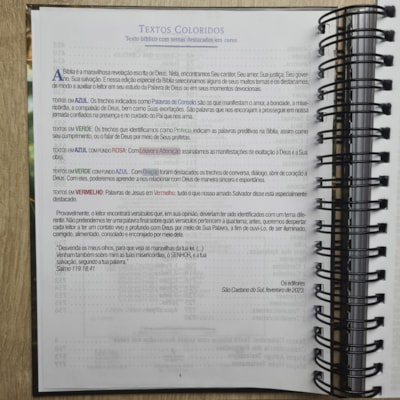 TEXTOS COLORIDOS
Texto bíblico com temas destacados em cores
A Bíblia é a maravilhosa revelação escrita de Deus. Nela, encontramos Seu caráter, Seu amor, Sua justiça, Seu gover-
no, Sua salvação. E nessa edição especial da Bíblia selecionamos alguns de seus muitos temas e os destacamos
de modo a auxiliar o leitor em seu estudo da Palavra de Deus ou em seus momentos devocionais.
TEXTOS EM AZUL. Os trechos indicados como Palavras de Consolo são os que manifestam o amor, a bondade, a mise-
ricórdia, a compaixão de Deus, bem como Suas exortações. São palavras que nos encorajam a prosseguir em nossa
jornada confiados na presença e no cuidado do Pai que nos ama.
TEXTOS EM VERDE. Os trechos que identificamos como Profecias indicam as palavras preditivas na Bíblia, assim como
seu cumprimento, ou a fala do próprio Deus por meio de Seus profetas.
TEXTOS EM AZUL COM FUNDO ROSA. Com Louvor e Adoração assinalamos as manifestações de exaltação à Deus e à Sua
obra.
TEXTOS EM VERDE COM FUNDO AZUL. Com Oração foram destacados os trechos de conversa, diálogo, abrir de coração a
Deus. Com eles, poderemos aprender a nos relacionar com Deus de maneira sincera e espontânea.
TEXTOS EM VERMELHO: Palavras de Jesus em Vermelho: tudo o que nosso amado Salvador disse está especialmente
destacado.
Provavelmente, o leitor encontrará versículos que, em sua opinião, deveriam ter sido identificados com um tema dife-
rente. Não pretendemos ter uma palavra final sobre quais versículos pertencem a qual tema, antes, queremos despertar
cada leitor a ter um contato vivo e profundo com Deus, por meio de Sua Palavra, a fim de ouvi-Lo, de ser iluminado,
corrigido, alimentado, consolado e encorajado por meio dela.
"Desvenda os meus olhos, para que veja as maravilhas da tua lei. (...)
Venham também sobre mim as tuas misericórdias, ó SENHOR, e a tua
salvação, segundo a tua palavra."
Salmo 119.18,41
Os editores
São Caetano do Sul, fevereiro de 2023.